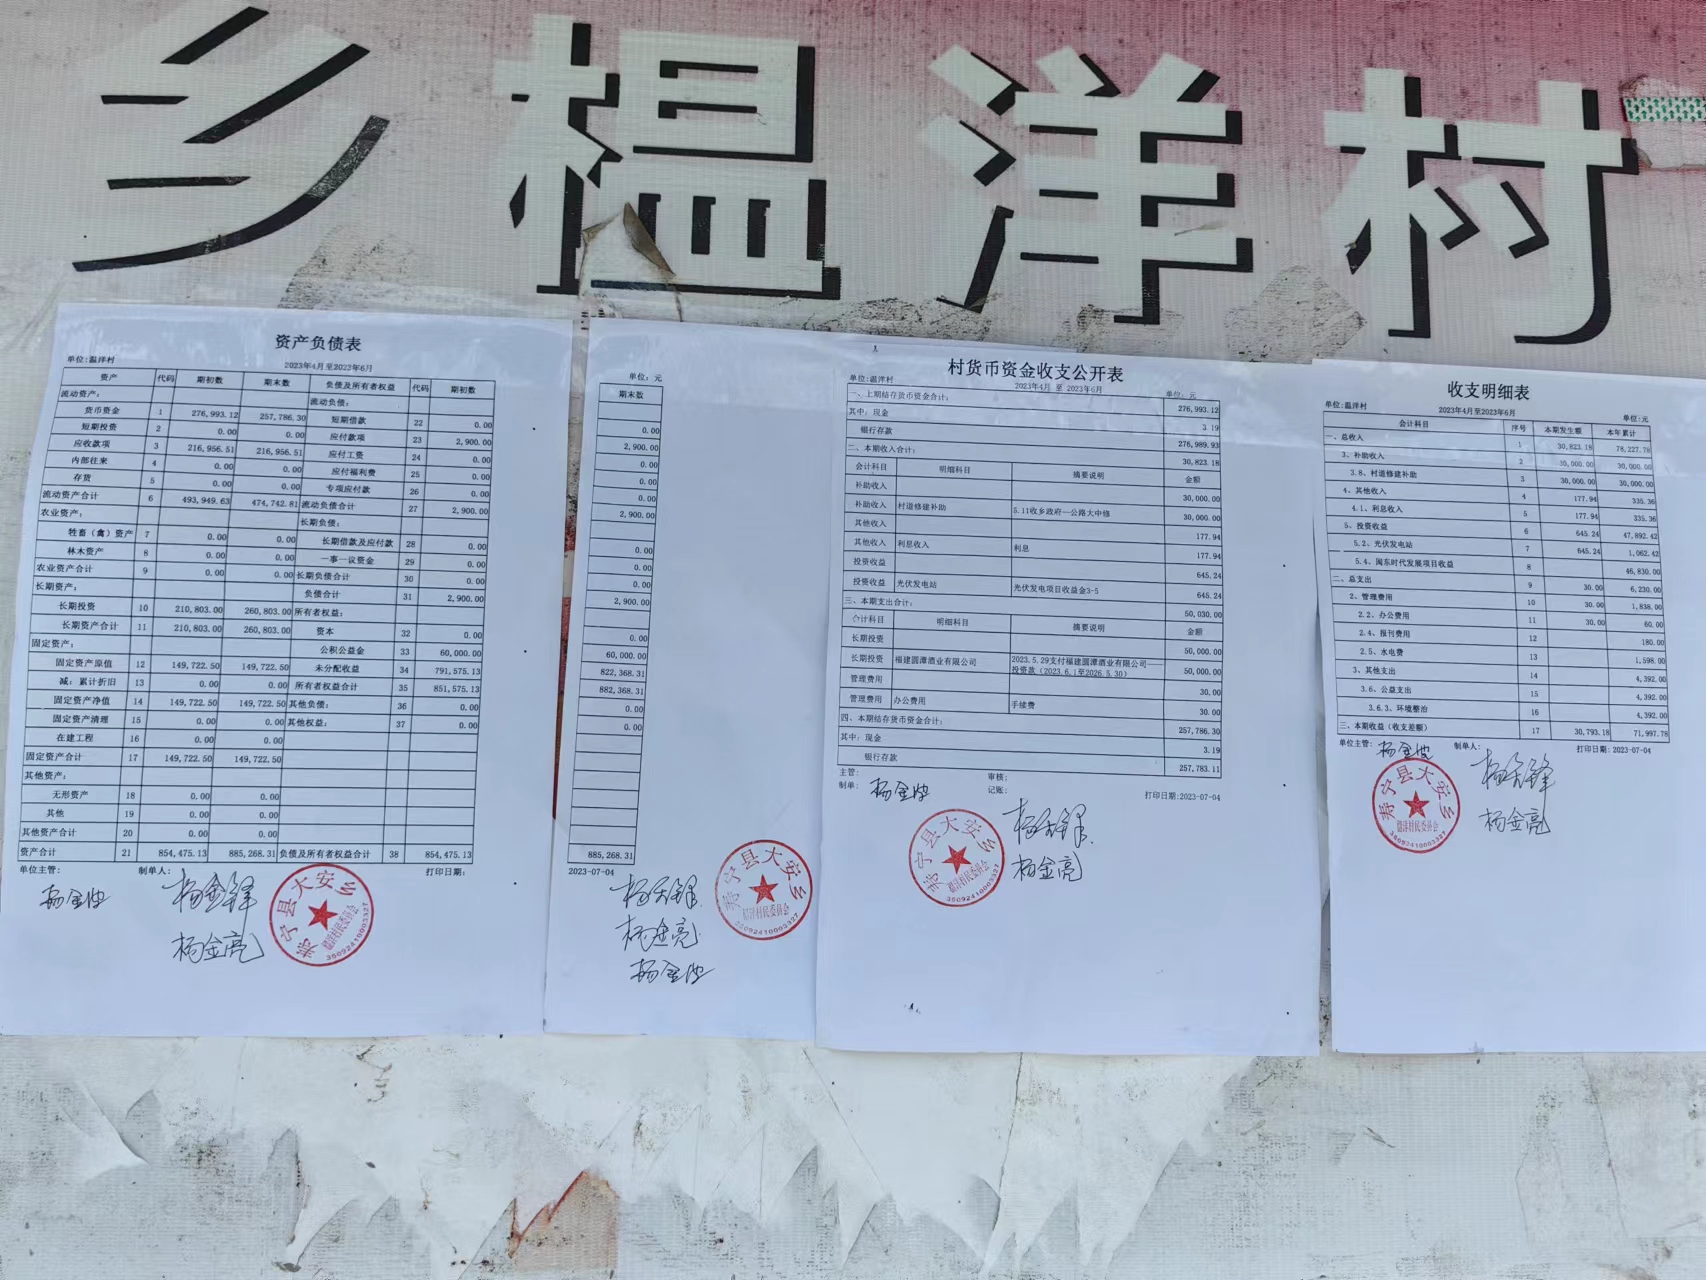 乡榅洋村
资产负债表
单位:温洋村 2023年4月至2023年6月
资产 代码 期初数 期末数 负债及所有者权益 代码 期初数
流动资产: 流动负债:
货币资金 1 276,993.12 257,786.30 短期借款 22 0.00
短期投资 2 0.00 0.00 应付款项 23 2,900.00
应收款项 3 216,956.51 216,956.51 应付工资 24 0.00
内部往来 4 0.00 0.00 应付福利费 25 0.00
存货 5 0.00 0.00 专项应付款 26 0.00
流动资产合计 6 493,949.63 474,742.81 流动负债合计 27 2,900.00
农业资产: 长期负债:
牲畜（禽）资产 7 0.00 0.00 长期借款及应付款 28 0.00
林木资产 8 0.00 0.00 一事一议资金 29 0.00
农业资产合计 9 0.00 0.00 长期负债合计 30 0.00
长期资产: 负债合计 31 2,900.00
长期投资 10 210,803.00 260,803.00 所有者权益:
长期资产合计 11 210,803.00 260,803.00 资本 32 0.00
固定资产: 公积公益金 33 60,000.00
固定资产原值 12 149,722.50 149,722.50 未分配收益 34 791,575.13
减: 累计折旧 13 0.00 0.00 所有者权益合计 35 851,575.13
固定资产净值 14 149,722.50 149,722.50 其他负债: 36 0.00
固定资产清理 15 0.00 0.00 其他权益: 37 0.00
在建工程 16 0.00 0.00
固定资产合计 17 149,722.50 149,722.50
其他资产:
无形资产 18 0.00 0.00
其他 19 0.00 0.00
其他资产合计 20 0.00 0.00
资产合计 21 854,475.13 885,268.31 负债及所有者权益合计 38 854,475.13
单位主管: 制单人: 打印日期:
杨金锋
杨金亮
寿宁县大安乡
榅洋村民委员会
35092410003327
单位: 元
期末数
0.00
2,900.00
0.00
0.00
0.00
2,900.00
0.00
0.00
0.00
2,900.00
0.00
60,000.00
822,368.31
882,368.31
0.00
0.00
885,268.31
2023-07-04
杨金亮
寿宁县大安乡
榅洋村民委员会
35092410003327
村货币资金收支公开表
单位:温洋村 2023年4月 至 2023年6月 单位: 元
一、上期结存货币资金合计: 276,993.12
其中: 现金 3.19
银行存款 276,989.93
二、本期收入合计: 30,823.18
会计科目 明细科目 摘要说明 金额
补助收入 30,000.00
补助收入 村道修建补助 5.11收乡政府—公路大中修 30,000.00
其他收入 177.94
其他收入 利息收入 利息 177.94
投资收益 645.24
投资收益 光伏发电站 光伏发电项目收益金3-5 645.24
三、本期支出合计: 50,030.00
会计科目 明细科目 摘要说明 金额
长期投资 50,000.00
长期投资 福建圆潭酒业有限公司 2023.5.29支付福建圆潭酒业有限公司——投资款（2023.6.1至2026.5.30） 50,000.00
管理费用 30.00
管理费用 办公费用 手续费 30.00
四、本期结存货币资金合计: 257,786.30
其中: 现金 3.19
银行存款 257,783.11
主管: 审核:
制单: 记账: 打印日期:2023-07-04
杨金亮
寿宁县大安乡
榅洋村民委员会
35092410003327
收支明细表
单位:温洋村 2023年4月至2023年6月 单位:元
会计科目 序号 本期发生额 本年累计
一、总收入 1 30,823.18 78,227.78
3、补助收入 2 30,000.00 30,000.00
3.8、村道修建补助 3 30,000.00 30,000.00
4、其他收入 4 177.94 335.36
4.1、利息收入 5 177.94 335.36
5、投资收益 6 645.24 47,892.42
5.2、光伏发电站 7 645.24 1,062.42
5.4、闽东时代发展项目收益 8 46,830.00
二、总支出 9 30.00 6,230.00
2、管理费用 10 30.00 1,838.00
2.2、办公费用 11 30.00 60.00
2.4、报刊费用 12 180.00
2.5、水电费 13 1,598.00
3、其他支出 14 4,392.00
3.6、公益支出 15 4,392.00
3.6.3、环境整治 16 4,392.00
三、本期收益（收支差额） 17 30,793.18 71,997.78
单位主管: 制单人: 打印日期: 2023-07-04
杨金亮
寿宁县大安乡
榅洋村民委员会
35092410003327